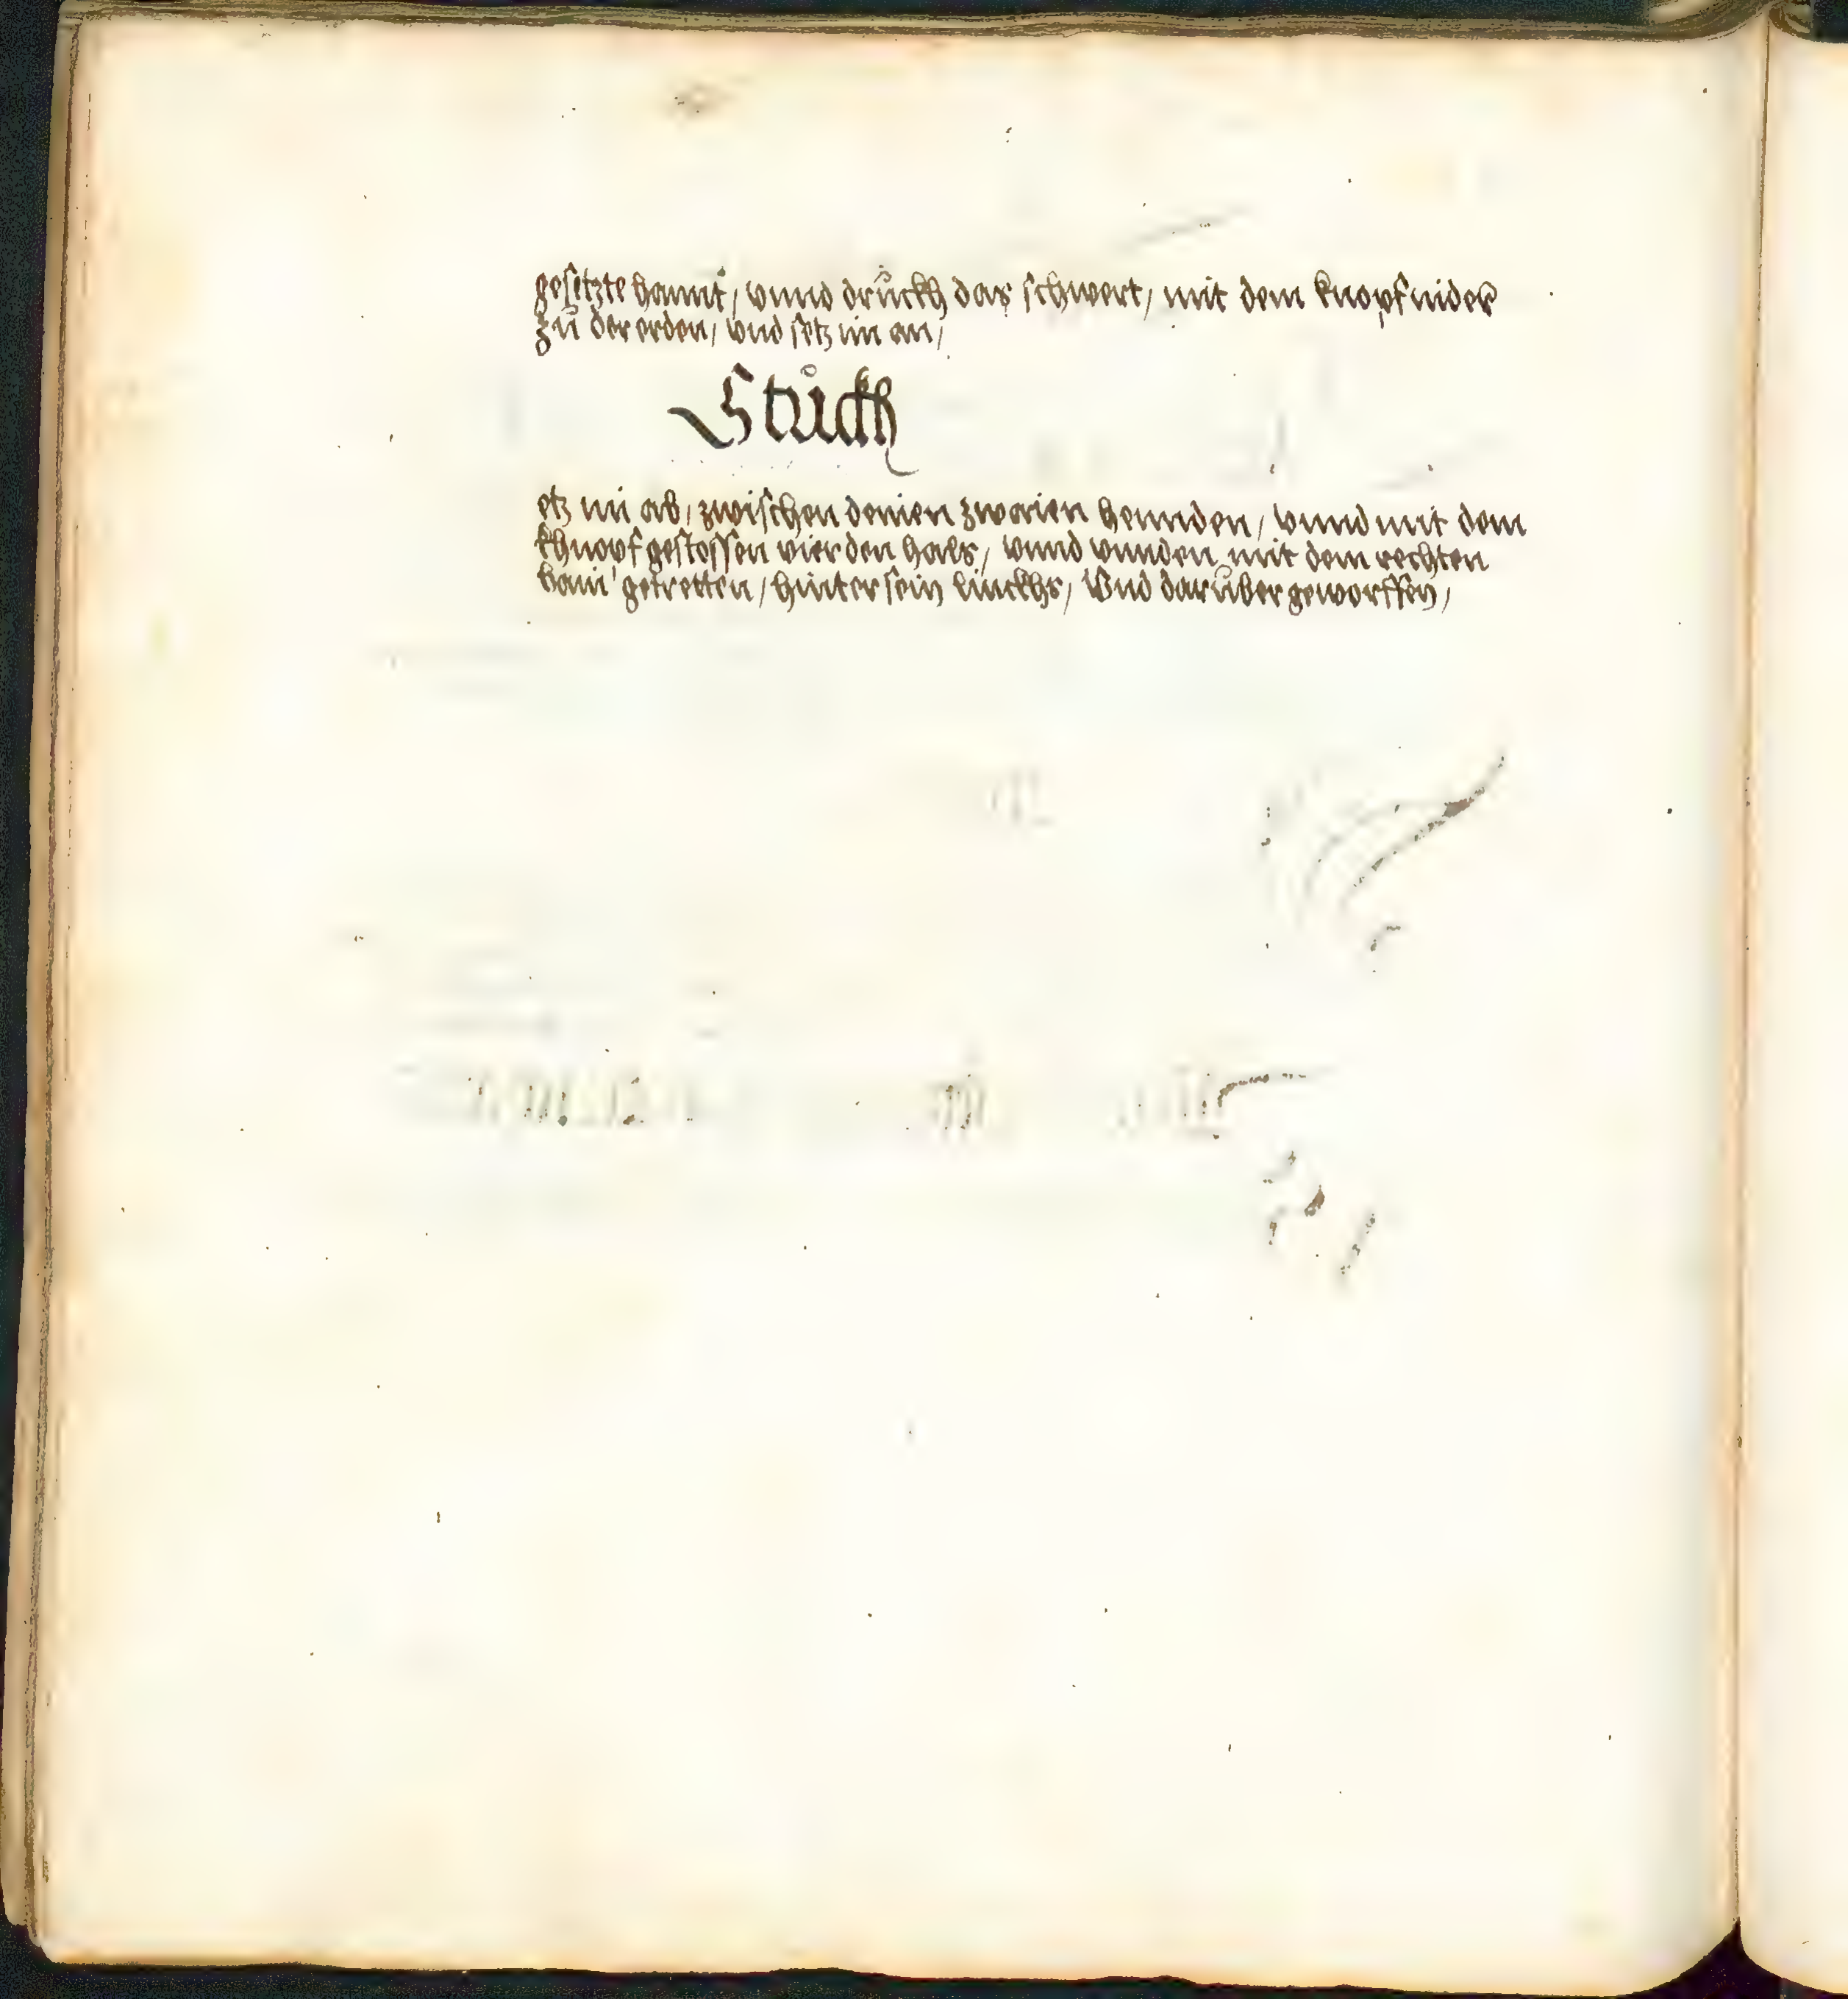 gesetzte hannt, vnnd drückh das schwert, mit dem knopf nider
zů der erden, vnd setz im an,
Stückh
etz im ab, zwischen denien zwaien hennden, vnnd mit dem
khnopf gestossen vier den hals, vnnd vnnden mit dem rechten
bain getretten, hinter sein linckhs, Vnd darüber geworffen,